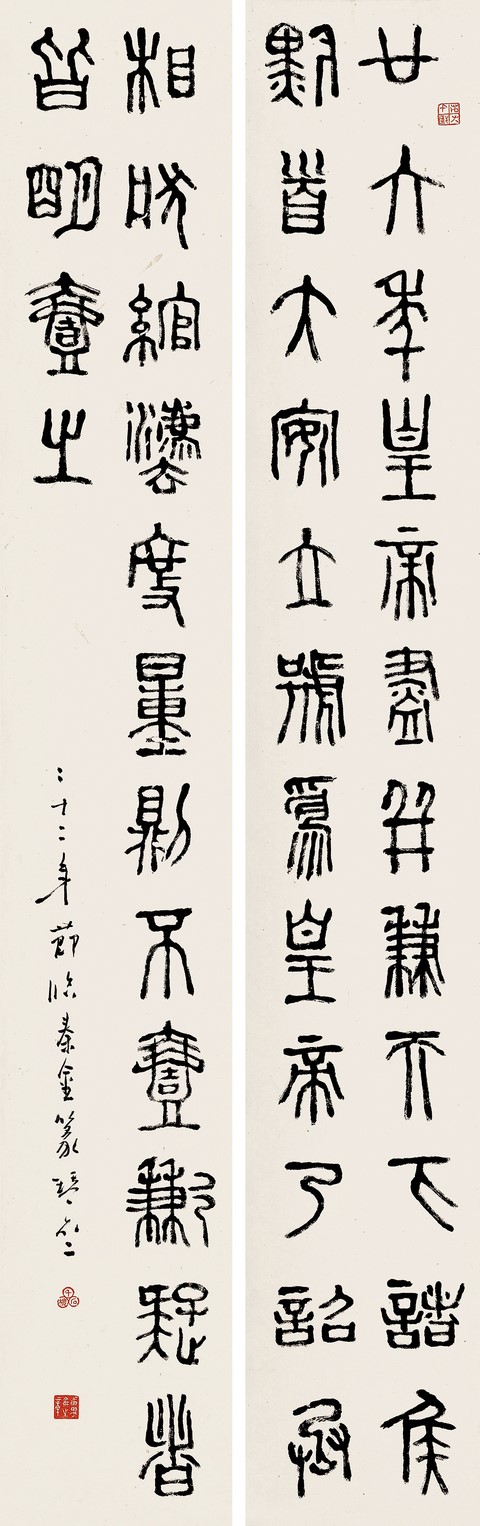 廿六年皇帝盡并兼天下諸侯
黔首大安立號為皇帝乃詔丞
相狀綰灋度量則不壹歉疑者
皆明壹之
二十二年節臨秦金篆